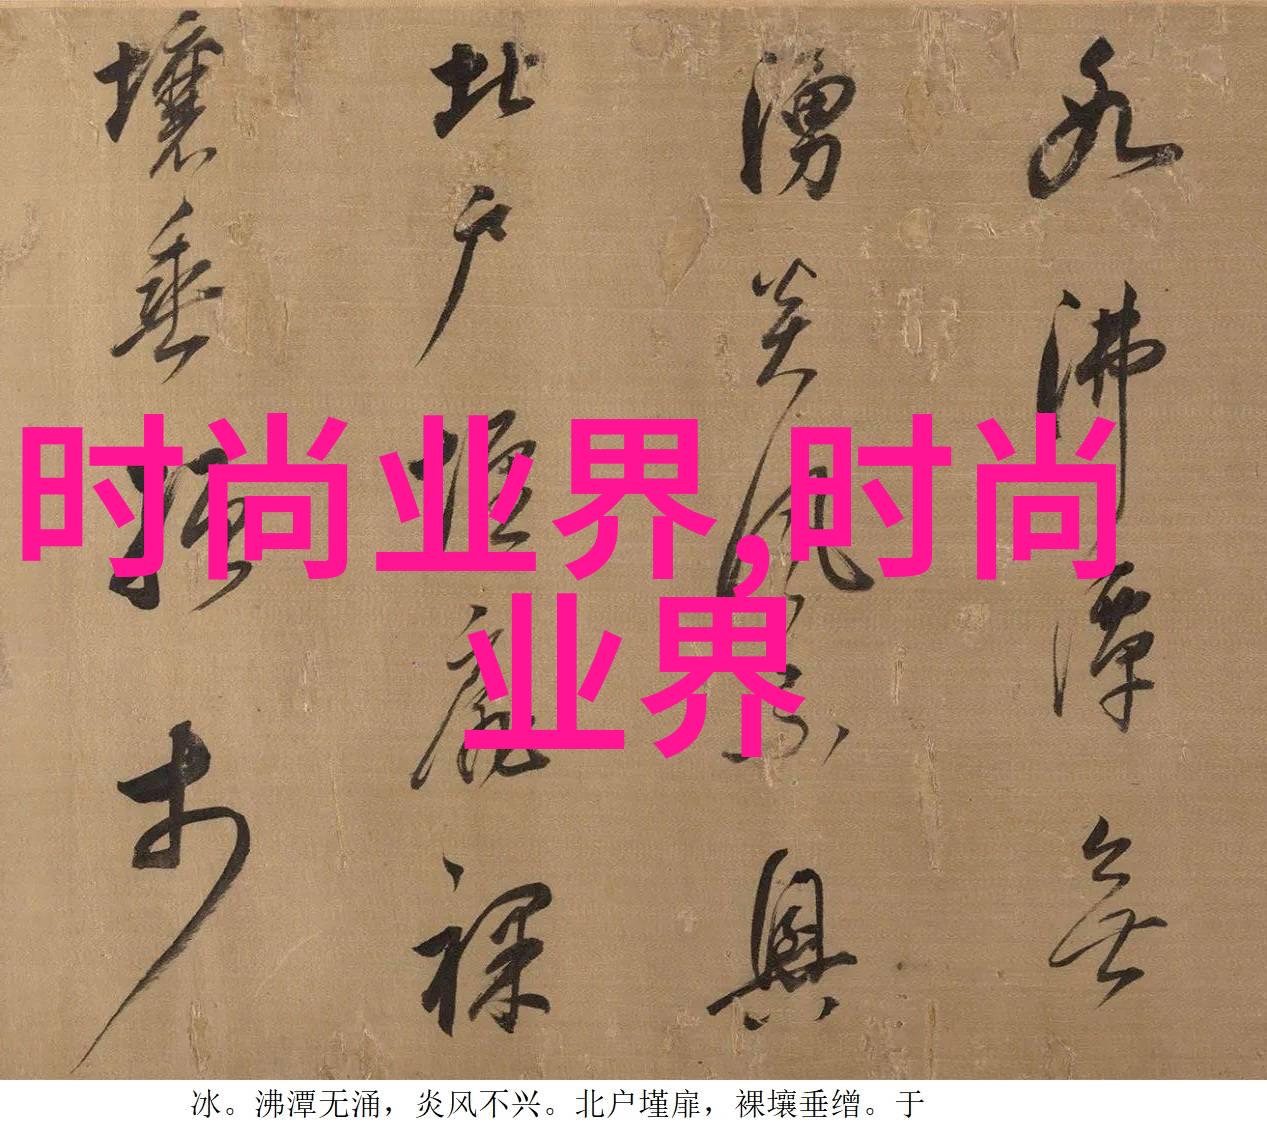 冰沸潭無
湧炎風不興
北户墐扉裸
壤垂繒於
时尚业界,时尚
业界
冰。沸潭无涌，炎风不兴。北户墐扉，裸壤垂缯。于